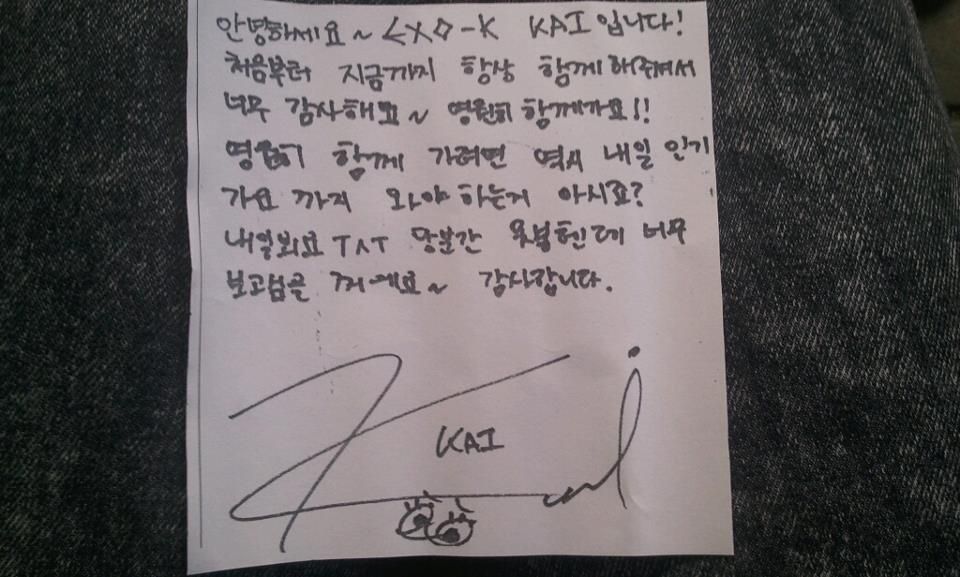 안녕하세요~ EXO-K KAI입니다!
처음부터 지금까지 항상 함께 해줘서
너무 감사해요~ 영원히 함께가요!!
영원히 함께 가려면 역시 내일 인기
가요 까지 와야 하는거 아시죠?
내일봐요 TㅅT 당분간 못볼텐데 너무
보고싶을 꺼에요~ 감사합니다.
KAI